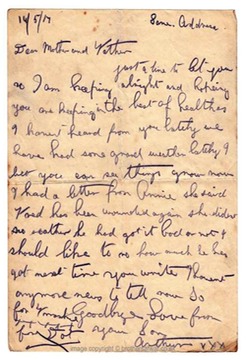 14/5/17 Same Address
Dear Mother and Father
just a line to let you
no I am keeping alright and hoping
you are keeping in the best of health as
I havent heard from you lately we
have had some grand weather lately I
bet you can see things grow now
I had a letter from Annie she said
has been wounded again she didnt
say weather he had got it bad or not I
should like to no how much he has
got next time you write I havent
anymore news to tell now So
Goodbye Love from
your Son
Arthur xxx